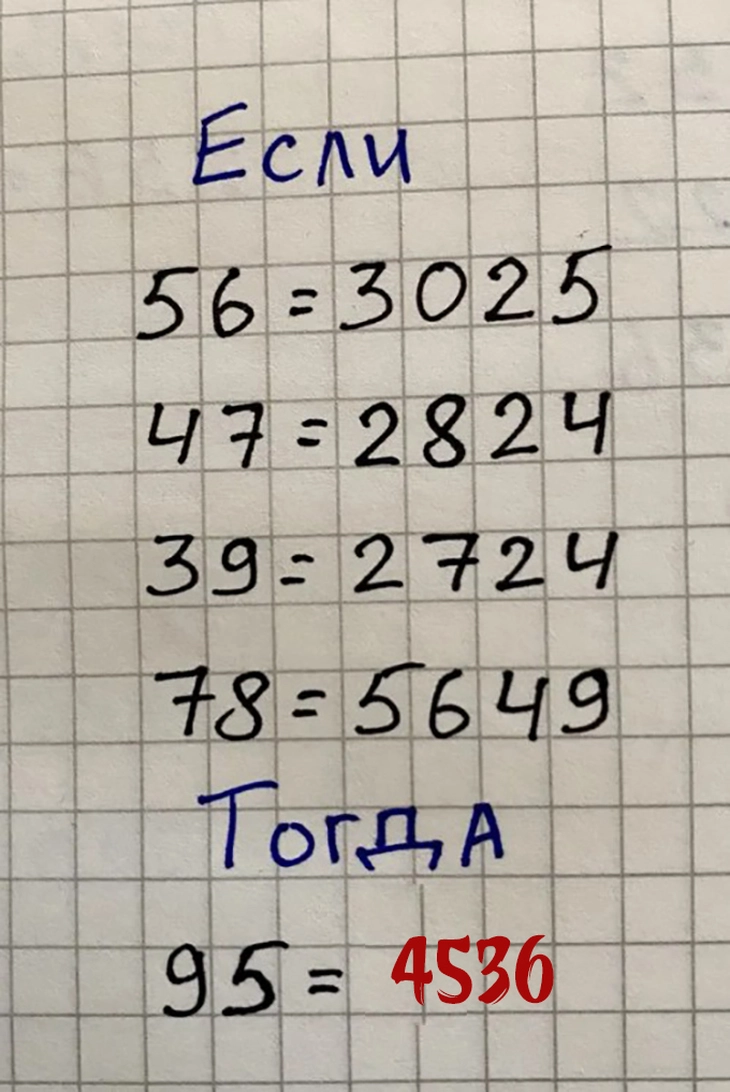 Если
56 = 3025
47 = 2824
39 = 2724
78 = 5649
Тогда
95 = 4536